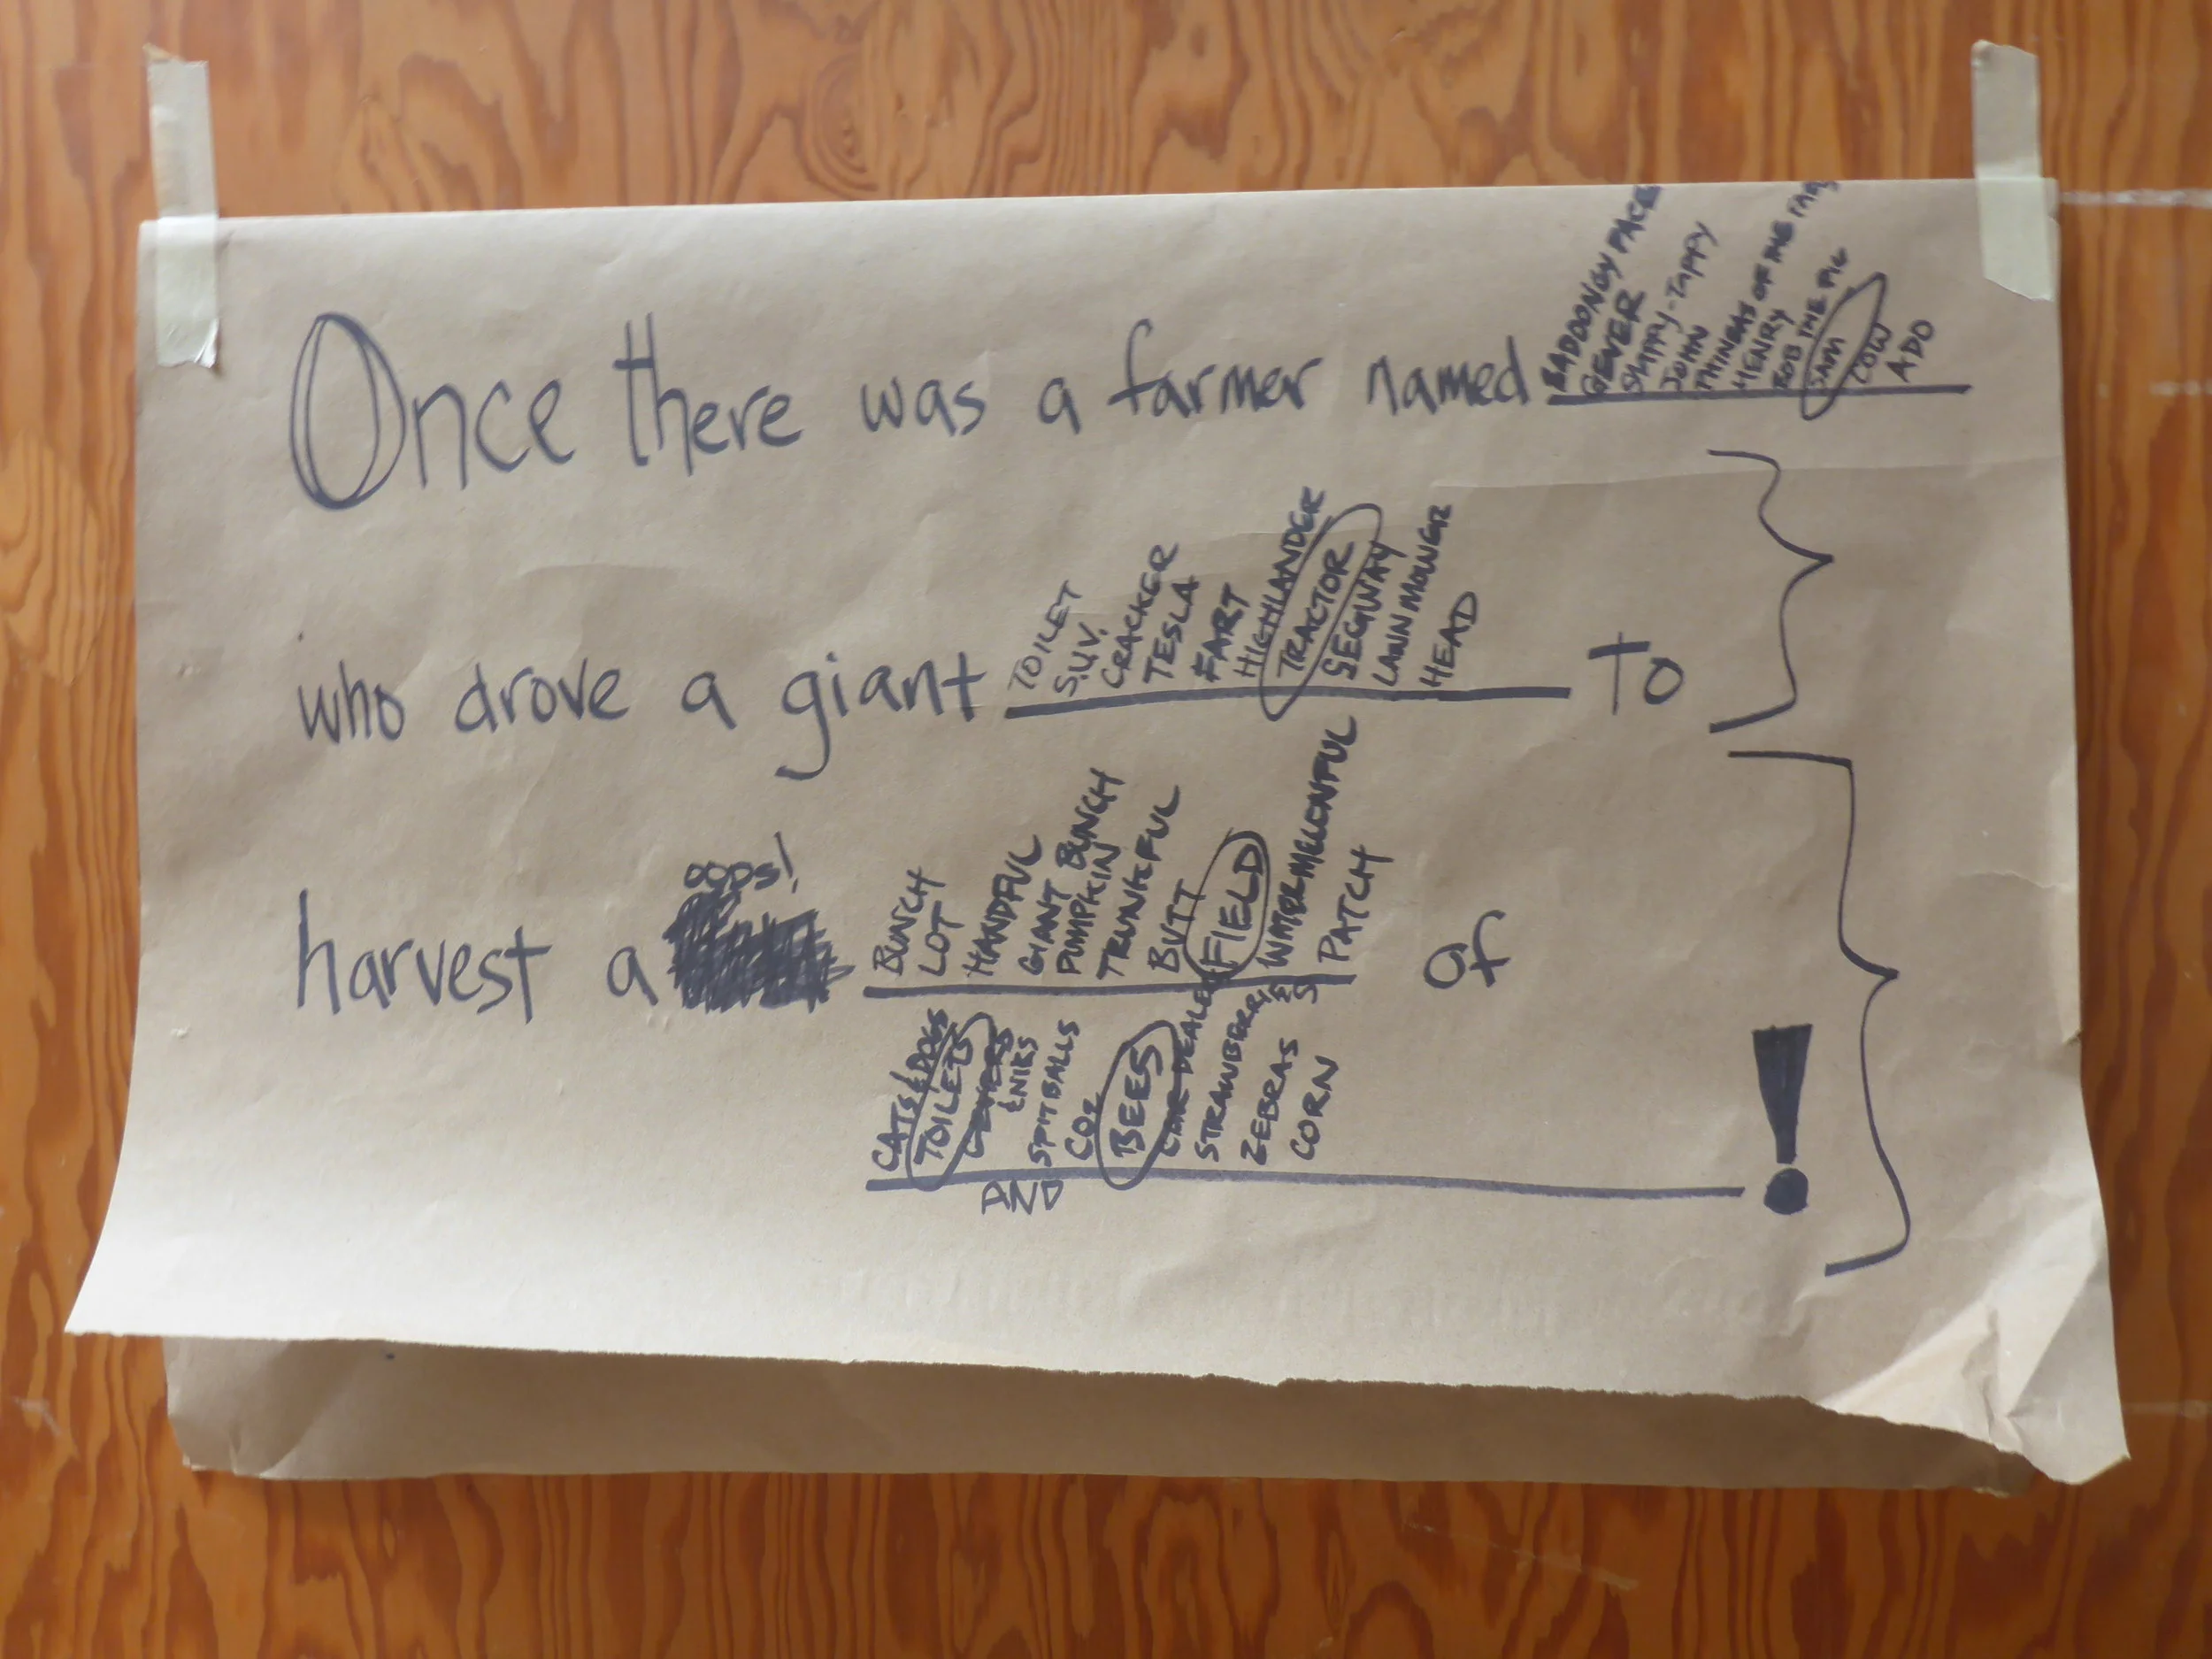 Once there was a farmer named
GEVER
SLAPPY-TAPPY
JOHN
HENRY
BOB THE PIG
SAM
COW
ADD
who drove a giant
TOILET
S.U.V.
CRACKER
TESLA
FART
HIGHLANDER
TRACTOR
SEGWAY
LAWNMOWER
HEAD
to
harvest a
oops!
BUNCH
LOT
HANDFUL
GIANT BUNCH
PUMPKIN
TRUNKFUL
BUTT
FIELD
WATERMELENFUL
PATCH
of
CATS & DOGS
TOILETS
AND
SPITBALLS
CO2
BEES
ZEBRAS
CORN
!